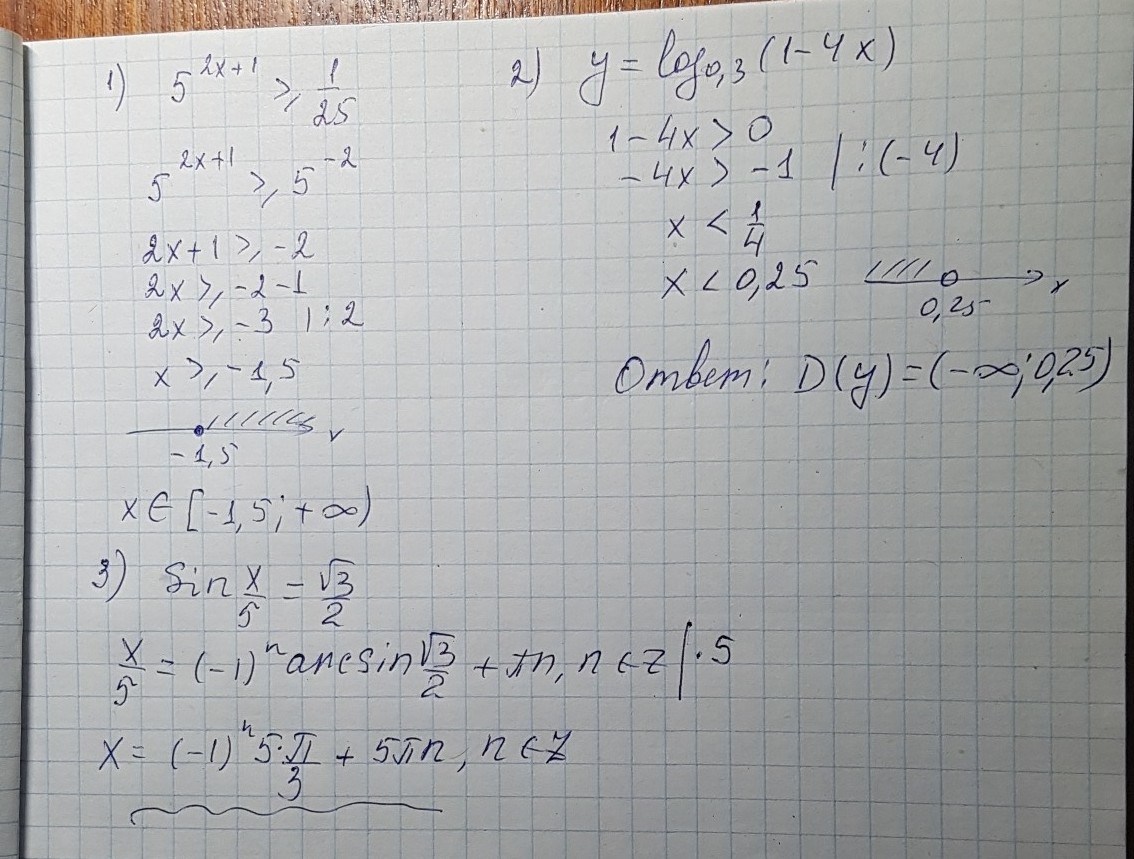 1) 5^{2x+1} ⩾ \frac{1}{25}
5^{2x+1} ⩾ 5^{-2}
2x+1 ⩾ -2
2x ⩾ -2-1
2x ⩾ -3 | : 2
x ⩾ -1,5
-1,5
x ∈ [-1,5; +∞)
2) y = log_{0,3}(1-4x)
1-4x > 0
-4x > -1 | : (-4)
x < \frac{1}{4}
x < 0,25
0,25 x
Ответ: D(y) = (-∞; 0,25)
3) Sin \frac{x}{5} = \frac{√3}{2}
\frac{x}{5} = (-1)^n arcsin \frac{√3}{2} + πn, n ∈ z | · 5
x = (-1)^n 5·\frac{π}{3} + 5πn, n ∈ Z